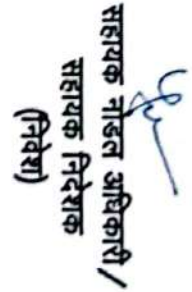 सहायक नोडल अधिकारी /
सहायक निदेशक
(निवेश)